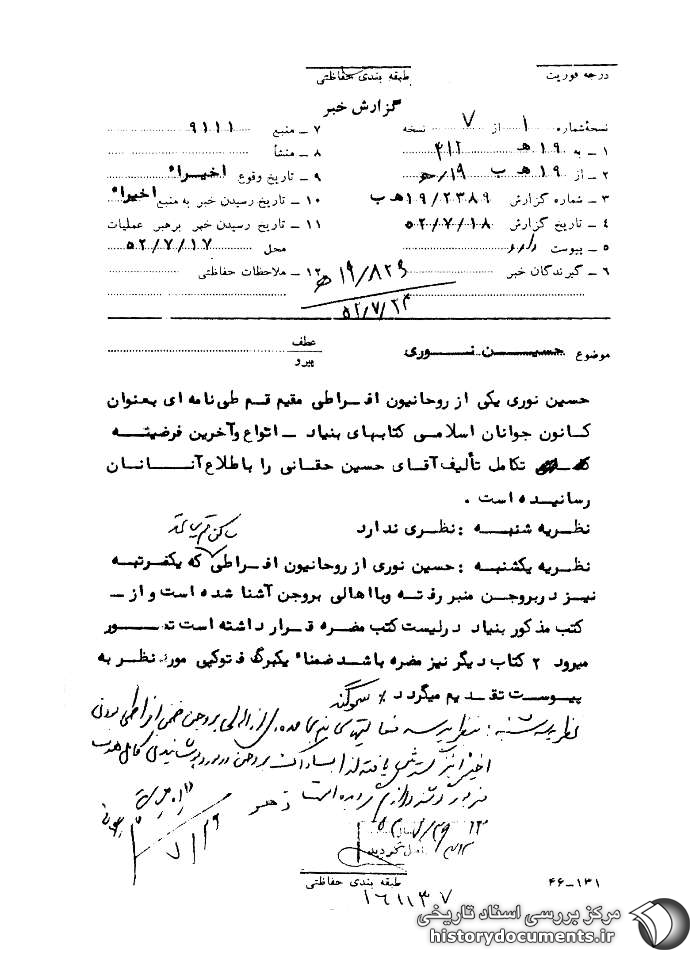 درجه فوریت
طبقه بندی حفاظتی
گزارش خبر
نسخهٔ شماره ۱ از ۷ نسخه
۱ – به ۱۹ هـ ۴۱۲
۲ – از ۱۹ هـ ب ۱۹/هـ
۳ – شماره گزارش ۱۹/۲۳۸۹ هـ ب
۴ – تاریخ گزارش ۵۲/۷/۱۸
۵ – پیوست دارد
۶ – گیرندگان خبر
۷ – منبع ۹۱۱۱
۸ – منشأ
۹ – تاریخ وقوع اخیراً
۱۰ – تاریخ رسیدن خبر به منبع اخیراً
۱۱ – تاریخ رسیدن خبر برهبر عملیات
محل ۵۲/۷/۱۷
۱۲ – ملاحظات حفاظتی
۱۹/۸۲۶ هـ
۵۲/۷/۲۴
موضوع حسین نوری
عطف
پیرو
حسین نوری یکی از روحانیون افراطی مقیم قم طی نامه ای بعنوان
کانون جوانان اسلامی کتابهای بنیاد – انواع وآخرین فرضیته
تکامل تألیف آقای حسین حقانی را باطلاع آنان
رسانیده است .
نظریه شنبه : نظری ندارد
ساکن قم
نظریه یکشنبه : حسین نوری از روحانیون افراطی که یکمرتبه
نیز دربروجن منبر رفته وبااهالی بروجن آشنا شده است و از –
کتب مذکور بنیاد درلیست کتب مضره قرار داشته است تصور
میرود ۲ کتاب دیگر نیز مضره باشد ضمناً یکبرگ فتوکپی مورد نظر به
پیوست تقدیم میگردد % سوگند
نظریه سه شنبه :
است
۴۶-۱۳۱
طبقه بندی حفاظتی
۱۶۱۱۳۷
مرکز بررسی اسناد تاریخی
historydocuments.ir